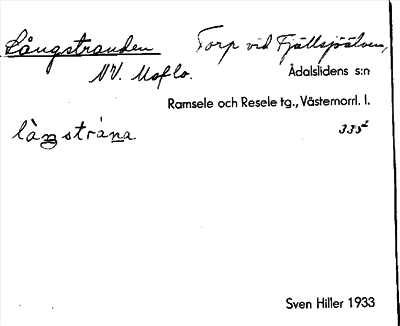 Långstranden Torp vid Fjällsjöälven,
NV. Moflo. Ådalslidens s:n
Ramsele och Resele tg., Västernorrl. l.
làn̲stràn̲a 335²
Sven Hiller 1933